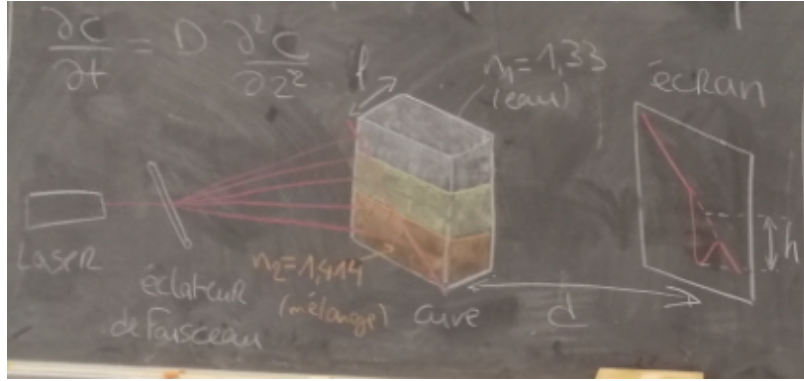 ∂C/∂t = D ∂²C/∂z²
l
n₁=1,33
(eau)
écran
Laser
éclateur
de faisceau
n₂=1,414
(mélange)
cuve
d
h